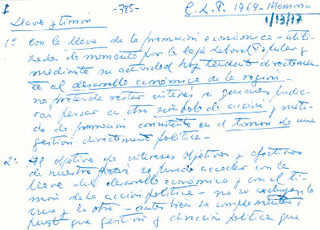 I - 785 - C.L.P. 1969 - Memoria
Llave y timón 1/13/17
1º: Con la llave de la promoción económica - utili-
zada de momento por la Caja Laboral Popular y
mediante su actividad hoy tendente directamen-
te al desarrollo económico de la región -
no pretende restar interés a quienes pudie-
ran pensar en otro símbolo de acción y méto-
do de promoción consistente en el timón de una
gestión directamente política -
2º: Al objetivo de intereses objetivos y efectivos
de nuestro país se puede acceder con la
llave del desarrollo económico y con el ti-
món de la acción política - no se excluyen la
una y el otro - antes bien se complementan
puesto que gestión y dirección política que